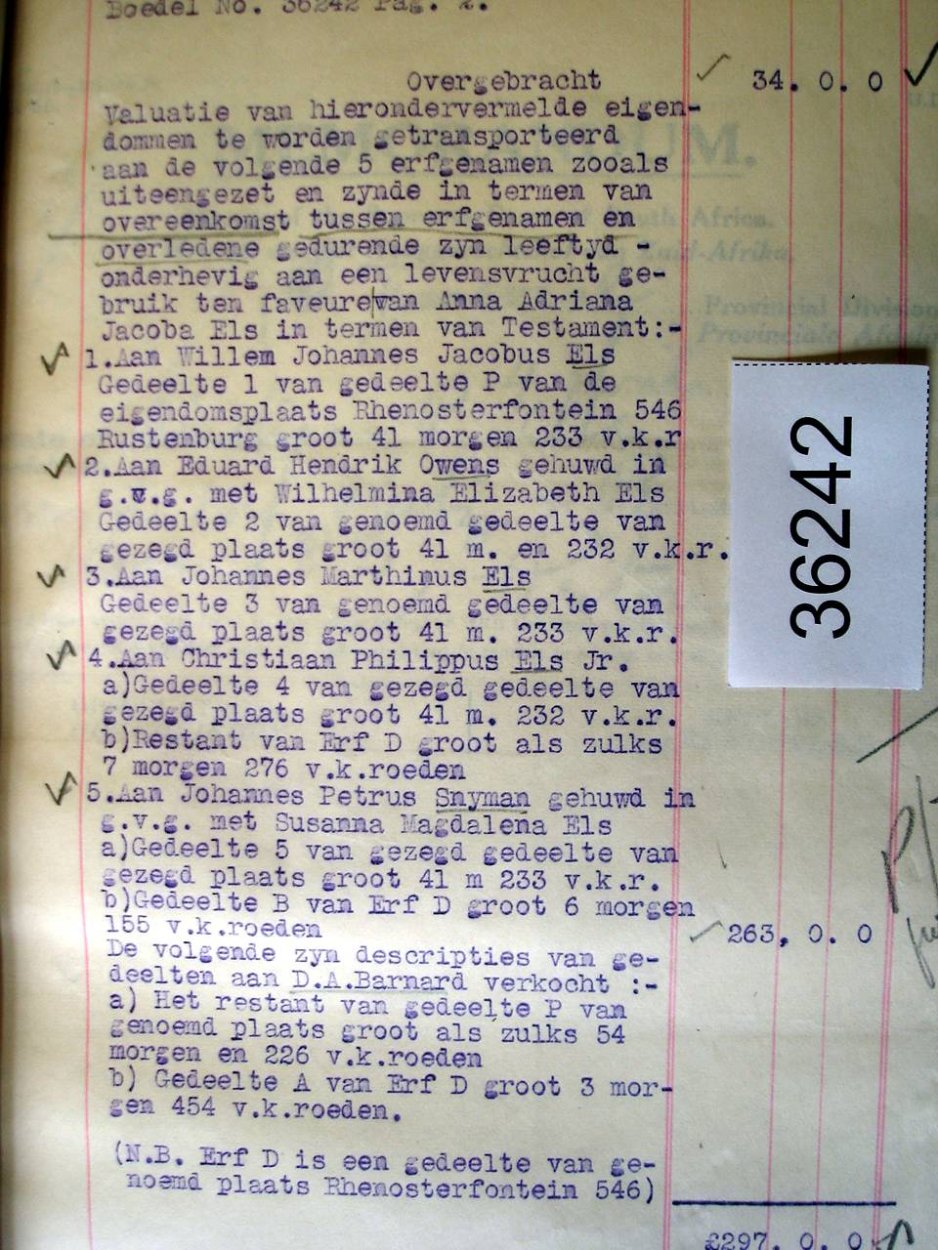 Boedel No. 36242 Pag. 2.
Overgebracht 34. 0. 0
Valuatie van hierondervermelde eigen-
dommen te worden getransporteerd
aan de volgende 5 erfgenamen zooals
uiteengezet en zynde in termen van
overeenkomst tussen erfgenamen en
overledene gedurende zyn leeftyd -
onderhevig aan een levensvrucht ge-
bruik ten faveure van Anna Adriana
Jacoba Els in termen van Testament:-
1.Aan Willem Johannes Jacobus Els
Gedeelte 1 van gedeelte P van de
eigendomsplaats Rhenosterfontein 546
Rustenburg groot 41 morgen 233 v.k.r
2.Aan Eduard Hendrik Owens gehuwd in
g.v.g. met Wilhelmina Elizabeth Els
Gedeelte 2 van genoemd gedeelte van
gezegd plaats groot 41 m. en 232 v.k.r.
3.Aan Johannes Marthinus Els
Gedeelte 3 van genoemd gedeelte van
gezegd plaats groot 41 m. 233 v.k.r.
4.Aan Christiaan Philippus Els Jr.
a)Gedeelte 4 van gezegd gedeelte van
gezegd plaats groot 41 m. 232 v.k.r.
b)Restant van Erf D groot als zulks
7 morgen 276 v.k.roeden
5.Aan Johannes Petrus Snyman gehuwd in
g.v.g. met Susanna Magdalena Els
a)Gedeelte 5 van gezegd gedeelte van
gezegd plaats groot 41 m 233 v.k.r.
b)Gedeelte B van Erf D groot 6 morgen
155 v.k.roeden 263. 0. 0
De volgende zyn descripties van ge-
deelten aan D.A.Barnard verkocht :-
a) Het restant van gedeelte P van
genoemd plaats groot als zulks 54
morgen en 226 v.k.roeden
b) Gedeelte A van Erf D groot 3 mor-
gen 454 v.k.roeden.
(N.B. Erf D is een gedeelte van ge-
noemd plaats Rhenosterfontein 546)
£297. 0. 0
36242